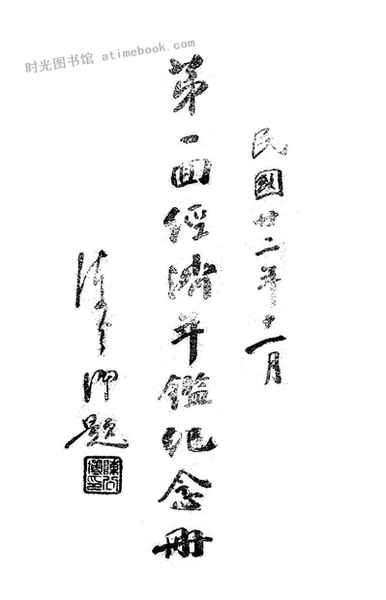 时光图书馆 atimebook.com
民國廿二年十一月
第一囬經濟年鑑紀念冊
陳公博題
陳公博印